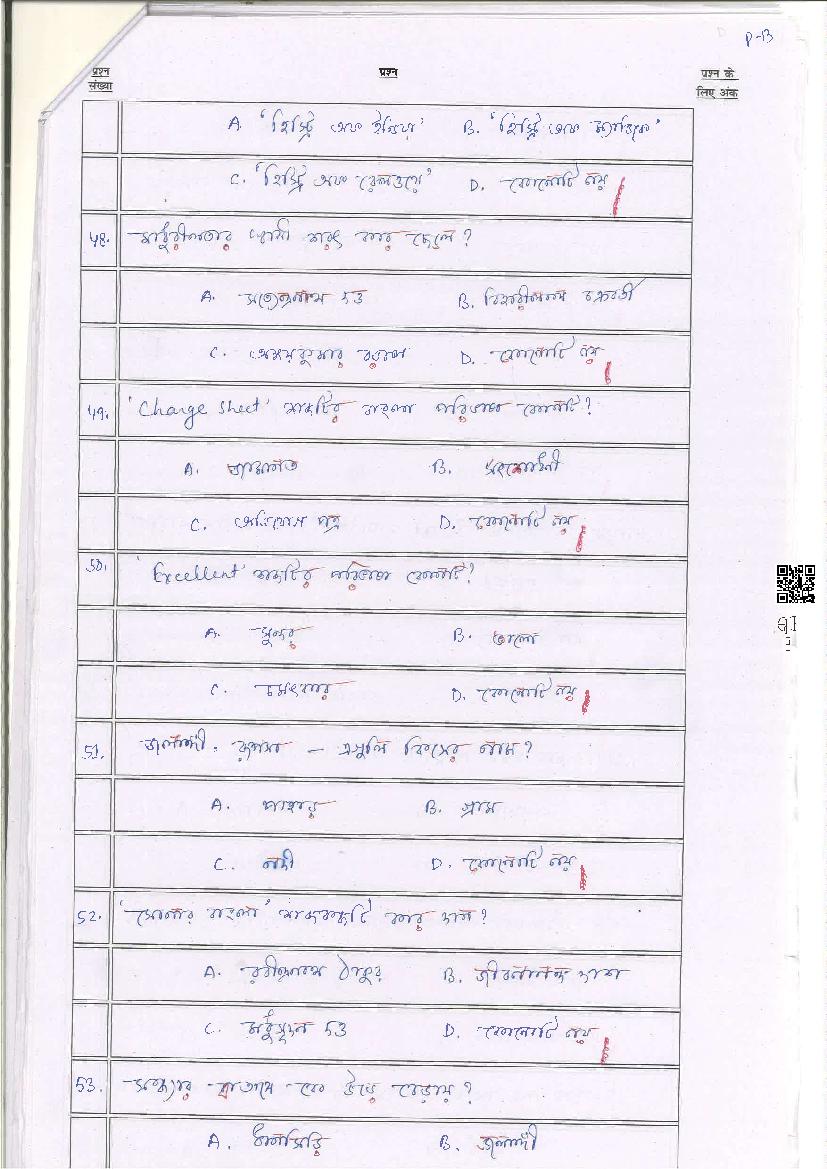 P-13
प्रश्न संख्या
प्रश्न
प्रश्न के लिए अंक
A. 'হিস্ট্রি অফ ইন্ডিয়া' B. 'হিস্ট্রি অফ ম্যাজিক'
C. 'হিস্ট্রি অফ রেলওয়ে' D. কোনোটি নয়।
48. মাধুরীলতার স্বামী শরৎ কার ছেলে?
A. সত্যেন্দ্রনাথ দত্ত B. বিহারীলাল চক্রবর্তী
C. অক্ষয়কুমার বড়াল D. কোনোটি নয়।
49. 'Charge Sheet' শব্দটির বাংলা পরিভাষা কোনটি?
A. জামানত B.
C. অভিযোগ পত্র D. কোনোটি নয়।
50. 'Excellent' শব্দটির পরিভাষা কোনটি?
A. সুন্দর B. ভালো
C. চমৎকার D. কোনোটি নয়।
51. জলাঙ্গী, রূপসা – এগুলি কিসের নাম?
A. পাহাড় B. গ্রাম
C. নদী D. কোনোটি নয়।
52. 'সোনার বাংলা' শব্দবন্ধটি কার দান?
A. রবীন্দ্রনাথ ঠাকুর B. জীবনানন্দ দাশ
C. মধুসূদন দত্ত D. কোনোটি নয়।
53. সন্ধ্যার বাতাসে কে উড়ে বেড়ায়?
A. ধানসিড়ি B. জলাঙ্গী